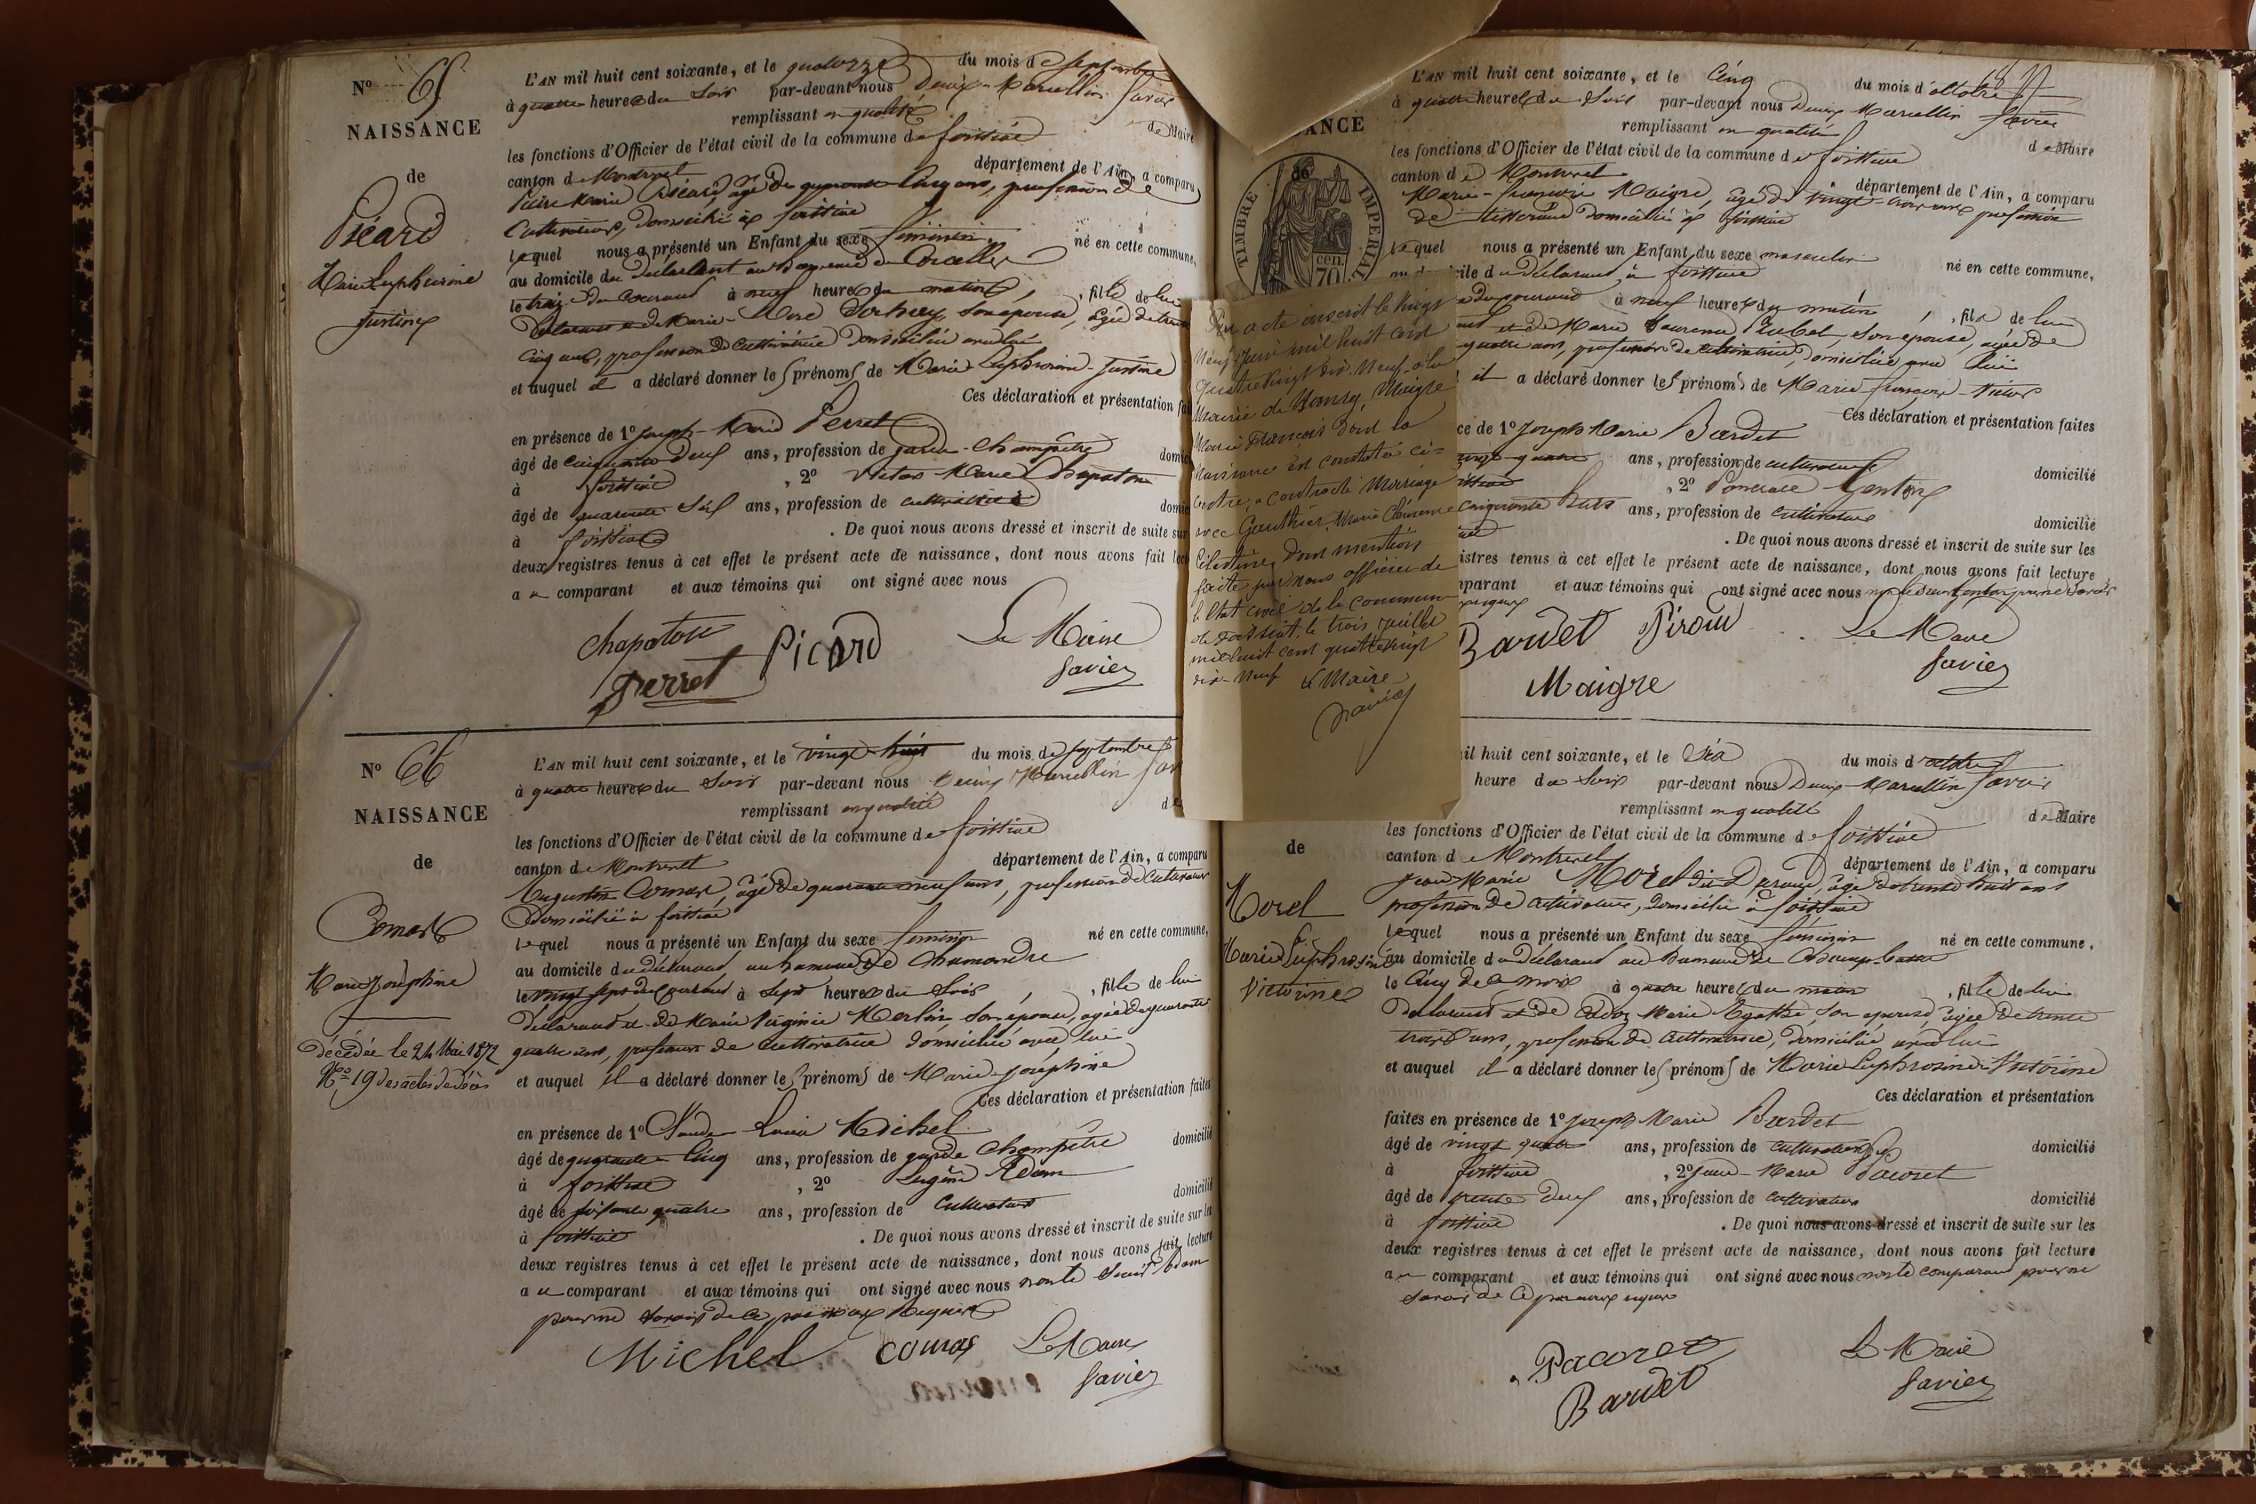 N° 65
NAISSANCE
de
Picard
Marie Euphrosine
Justine
L'AN mil huit cent soixante, et le quatorze du mois de septembre
à quatre heures du soir par-devant nous Denis-Marcellin Favier
remplissant en qualité de Maire
les fonctions d'Officier de l'état civil de la commune de foissiat
canton de Montrevel département de l'Ain, a comparu
Pierre Marie Picard, âgé de quarante cinq ans, profession de
cultivateur, domicilié à foissiat
lequel nous a présenté un Enfant du sexe féminin né en cette commune,
au domicile du déclarant au hameau de Corcelles
le treize du courant à neuf heures du matin, fille de lui
déclarant et de Marie son épouse, âgée de trente
cinq ans, profession de cultivatrice domiciliée avec lui
et auquel il a déclaré donner les prénoms de Marie Euphrosine Justine
Ces déclaration et présentation
en présence de 1° Joseph-Marie Perret
âgé de cinquante deux ans, profession de garde-champêtre
à foissiat, 2° Victor Marie Chapaton
âgé de quarante six ans, profession de cultivateur
à foissiat. De quoi nous avons dressé et inscrit de suite sur
deux registres tenus à cet effet le présent acte de naissance, dont nous avons fait
au comparant et aux témoins qui ont signé avec nous
Chapaton Picard Le Maire
Perret Favier
N° 66
NAISSANCE
de
Comas
Marie Joséphine
Décédée le 24 Mai 1872
N° 19 des actes de Décès
L'AN mil huit cent soixante, et le vingt-huit du mois de septembre
à quatre heures du soir par-devant nous Denis Marcellin
remplissant en qualité
les fonctions d'Officier de l'état civil de la commune de foissiat
canton de Montrevel département de l'Ain, a comparu
Augustin Comas, âgé de quarante neuf ans, profession de cultivateur
domicilié à foissiat
lequel nous a présenté un Enfant du sexe féminin né en cette commune,
au domicile du déclarant, au hameau de Chamandre
le vingt sept du courant à sept heures du soir, fille de lui
déclarant et de Marie Virginie Merlin son épouse, agée de quarante
quatre ans, profession de cultivatrice domiciliée avec lui
et auquel il a déclaré donner les prénoms de Marie Joséphine
Ces déclaration et présentation faites
en présence de 1° Claude Michel
âgé de quarante cinq ans, profession de garde champêtre domicilié
à foissiat, 2° Eugène Adam
âgé de soixante quatre ans, profession de cultivateur domicilié
à foissiat. De quoi nous avons dressé et inscrit de suite sur les
deux registres tenus à cet effet le présent acte de naissance, dont nous avons fait lecture
au comparant et aux témoins qui ont signé avec nous
pour ne savoir de ce par nous requis
Michel comas Le Maire
Favier
ANCE
TIMBRE IMPERIAL
70 cen.
L'AN mil huit cent soixante, et le Cinq du mois d'octobre
à quatre heures du soir par-devant nous Denis Marcellin Favier
remplissant en qualité de Maire
les fonctions d'Officier de l'état civil de la commune de foissiat
canton de Montrevel département de l'Ain, a comparu
Marie-françois Maigre, âgé de vingt-trois ans profession
de domicilié à foissiat
lequel nous a présenté un Enfant du sexe masculin né en cette commune,
domicile du déclarant, à foissiat
du courant à neuf heures du matin, fils de lui
et de Marie Laurence son épouse, agée de
quatre ans, profession de cultivatrice, domiciliée avec lui
il a déclaré donner les prénoms de Marie françois Victor
Ces déclaration et présentation faites
ce de 1° Joseph Marie Bardet
vingt-quatre ans, profession de cultivateur domicilié
, 2° Genton
cinquante huit ans, profession de cultivateur domicilié
. De quoi nous avons dressé et inscrit de suite sur les
istres tenus à cet effet le présent acte de naissance, dont nous avons fait lecture
mparant et aux témoins qui ont signé avec nous
Bardet Piroud Le Maire
Maigre Favier
Par acte inscrit le vingt
neuf Juin mil huit cent
quatre vingt dix-neuf à la
Mairie de Maigre
Marie François dont la
Naissance est constatée ci-
contre, a contracté Mariage
avec Gauthier Marie Clémence
Célestine, dont mention
faite par nous officier de
l'Etat civil de la commune
de foissiat, le trois juillet
mil huit cent quatre vingt
dix-neuf Le Maire
de
Morel
Marie Euphrosine
Victorine
il huit cent soixante, et le Six du mois d'octobre
heure du soir par-devant nous Denis-Marcellin Favier
remplissant en qualité de Maire
les fonctions d'Officier de l'état civil de la commune de foissiat
canton de Montrevel département de l'Ain, a comparu
Jean Marie Morel dit âgé de trente huit ans
profession de cultivateur, domicilié à foissiat
lequel nous a présenté un Enfant du sexe féminin né en cette commune,
au domicile du déclarant au hameau de
le cinq de ce mois à quatre heures du matin, fille de lui
déclarant et de Marie Agathe, son épouse agée de trente
trois ans, profession de cultivatrice, domiciliée avec lui
et auquel il a déclaré donner les prénoms de Marie Euphrosine Victorine
Ces déclaration et présentation
faites en présence de 1° Joseph Marie Bardet
âgé de vingt quatre ans, profession de cultivateur domicilié
à foissiat, 2° Jean-Marie Pacoret
âgé de trente deux ans, profession de cultivateur domicilié
à foissiat. De quoi nous avons dressé et inscrit de suite sur les
deux registres tenus à cet effet le présent acte de naissance, dont nous avons fait lecture
au comparant et aux témoins qui ont signé avec nous non le comparant pour ne
savoir de ce par nous requis
Pacoret Le Maire
Bardet Favier